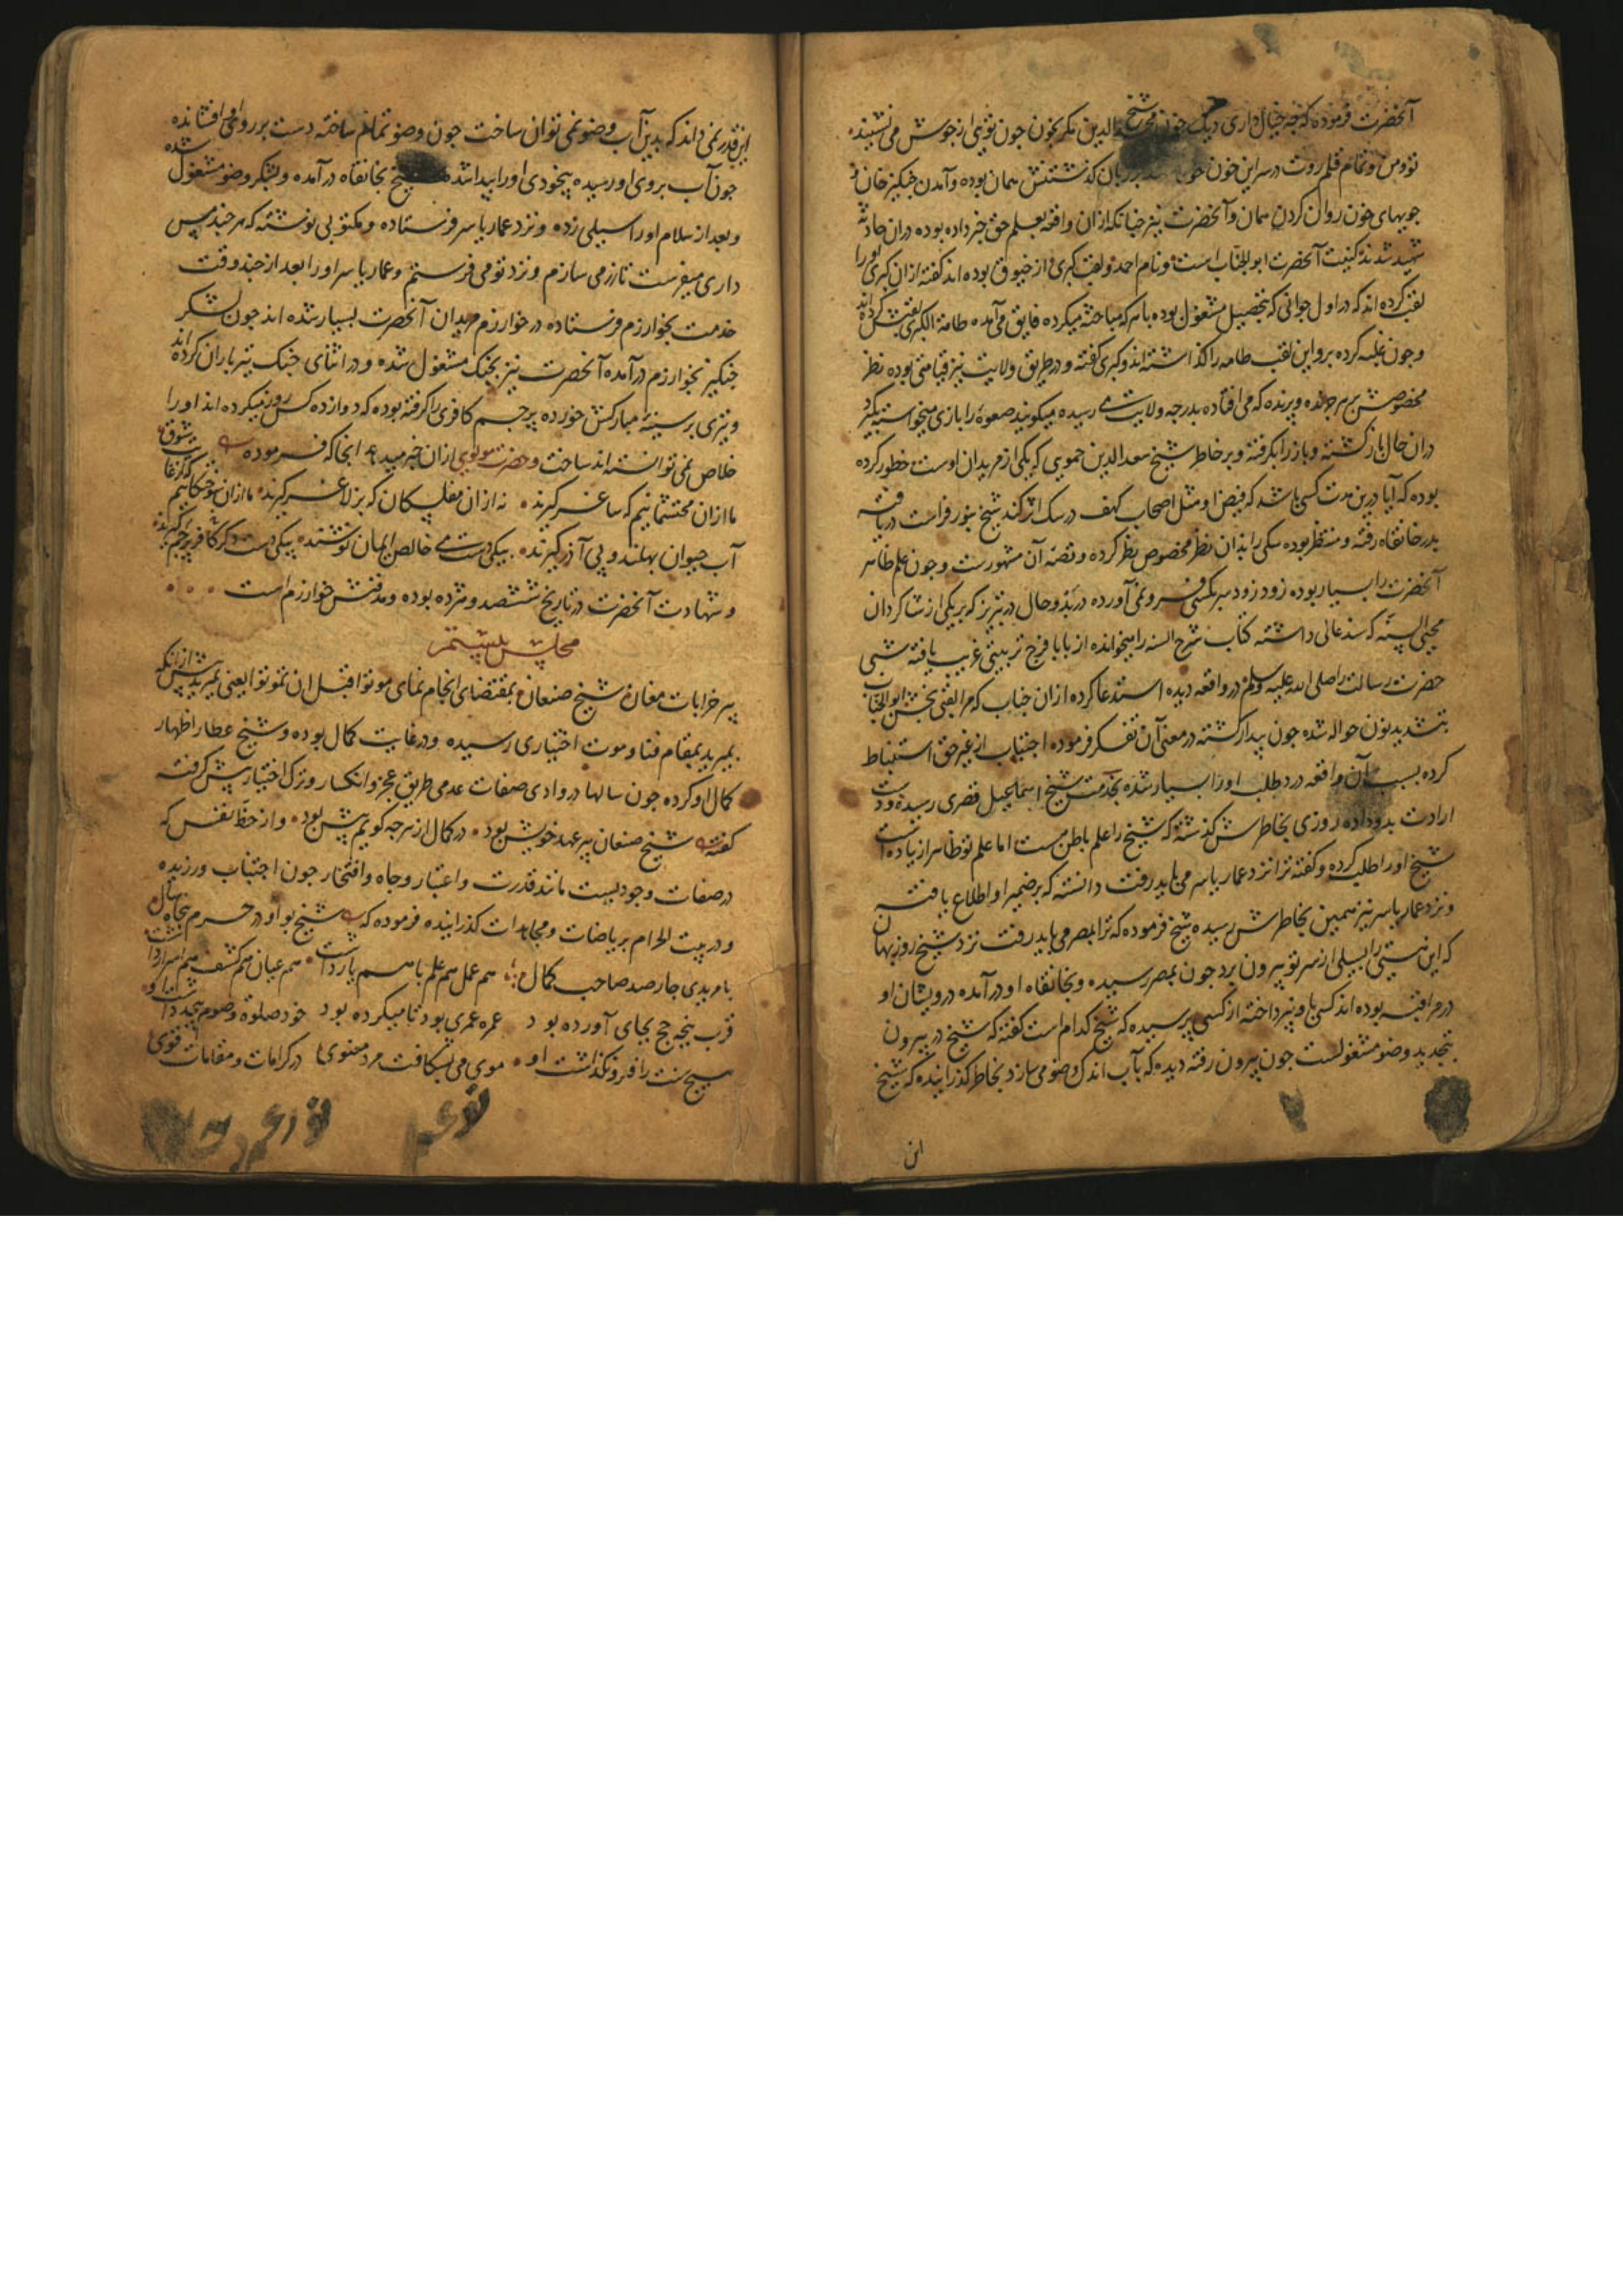 آنحضرت فرموده که چه خیال داری دیک خون شیخ مجدالدین مکر بخون چون تویی از جوش می نشیند
تو و من و تمام قلم روت در سر این خون خو بر زبان گذشتنش همان بوده و آمدن جنکیز خان و
جویهای خون روان کردن همان و آنحضرت نیز چنانکه ازان واقعه بعلم حق خبر داده بوده دران حادثه
شهید شدند کنیت آنحضرت ابو الجناب است و نام احمد و لقب کبری و از خیوق بوده اند گفته ازان کبری او را
لقب کرده اند که در اول جوانی که بتحصیل مشغول بوده با هر که مباحثه میکرده فایق می آمده طامة الکبری لقبش کرده اند
و چون غلبه کرده برو این لقب طامه را گذاشته اند و کبری گفته و در طریق ولایت نیز قیامتی بوده نظر
مخصوصش بر هر چرنده و پرنده که می افتاده بدرجه ولایت می رسیده میکویند صعوه را بازی میخواسته بگیرد
دران حال باز گشته و باز را بگرفته و بر خاطر شیخ سعد الدین حموی که یکی از مریدان اوست خطور کرده
بوده که آیا درین مدت کسی باشد که فیض او مثل اصحاب کهف در سک اثر کند شیخ بنور فراست دریافته
بدر خانقاه رفته و منتظر بوده سکی را بدان نظر مخصوص نظر کرده و قصه آن مشهورست و چون علم ظاهر
آنحضرت را بسیار بوده زود زود سر بکسی فرو نمی آورده در بدو حال در تبریز که بر یکی از شاکردان
محیی السنه که سند عالی داشته کتاب شرح السنه را میخوانده از بابا فرج تربیتی غریب یافته شبی
حضرت رسالت را صلی الله علیه وسلم در واقعه دیده استدعا کرده ازان جناب که مرا لقبی بخش ابو الجناب
بتشدید نون حواله شده چون بیدار گشته در معنی آن تفکر فرموده اجتناب از غیر حق استنباط
کرده بسبب آن واقعه درد طلب او را بسیار شده بخدمت شیخ اسمعیل قصری رسیده و دست
ارادت بدو داده روزی بخاطرش گذشته که شیخ را علم باطن هست اما علم تو ظاهر از زیاده است
شیخ او را طلب کرده و گفته ترا نزد عمار یاسر می باید رفت دانسته که بر ضمیر او اطلاع یافته
و نزد عمار یاسر نیز همین بخاطرش رسیده شیخ فرموده که ترا بمصر می باید رفت نزد شیخ روزبهان
که این هستی را بسیلی از سر تو بیرون برد چون بمصر رسیده و بخانقاه او در آمده درویشان او
در مراقبه بوده اند کسی باو نپرداخته از کسی پرسیده که شیخ کدام است گفته که شیخ در بیرون
بتجدید وضو مشغولست چون بیرون رفته دیده که بآب اندک وضو می سازد بخاطر گذرانیده که شیخ
این
این قدر نمی داند که بدین آب وضو نمی توان ساخت چون وضو تمام ساخته دست بر روی او افشانده
چون آب بروی او رسیده بیخودی او را پیدا شده شیخ بخانقاه در آمده و بشکر وضو مشغول شده
و بعد از سلام او را سیلی زده و نزد عمار یاسر فرستاده و مکتوبی نوشته که هر چند مس
داری میفرست تا زر می سازم و نزد تو می فرستم و عمار یاسر او را بعد از چند وقت
خدمت بخوارزم فرستاده در خوارزم مریدان آنحضرت بسیار شده اند چون لشکر
جنکیز بخوارزم در آمده آنحضرت نیز بجنک مشغول شده و در اثنای جنک تیر باران کرده اند
و تیری بر سینهٔ مبارکش خورده پرچم کافری را گرفته بوده که دوازده کس زور میکرده اند او را
خلاص نمی توانسته اند ساخت و حضرت مولوی ازان خبر میدهد آنجا که فرموده بیت
ما ازان محتشمانیم که ساغر گیرند نه ازان مفلسکان که بز لاغر گیرند ما ازان سوختکانیم که از غایت شوق
آب حیوان بهلند و پی آذر گیرند بیکی دست می خالص ایمان نوشند بیکی دست دکر کافر پرچم گیرند
و شهادت آنحضرت در تاریخ ششصد و هژده بوده و مدفنش خوارزم است
مجلس بیستم
پیر خرابات مغان شیخ صنعان بمقتضای انجام نمای موتوا قبل ان تموتوا یعنی بمیرید پیش ازانکه
بمیرید بمقام فنا و موت اختیاری رسیده و در غایت کمال بوده و شیخ عطار اظهار
کمال او کرده چون سالها در وادی صفات عدمی طریق عجز و انکسار و ترک اختیار پیش گرفته
گفته بیت شیخ صنعان پیر عهد خویش بود در کمال از هر چه گویم بیش بود و از حظ نفس که
در صفات وجودیست مانند قدرت و اعتبار و جاه و افتخار چون اجتناب ورزیده
و در بیت الحرام بریاضات و مجاهدات گذرانیده فرموده که بیت شیخ بود او در حرم پنجاه سال
با مریدی چارصد صاحب کمال هم عمل هم علم با هم یار داشت هم عیان هم کشف هم اسرار داشت
قرب پنجه حج بجای آورده بود عمره عمری بود تا میکرده بود خود صلوة و صوم بیحد داشت او
هیچ سنت را فرو نگذاشت او موی می بشکافت مرد معنوی در کرامات و مقامات قوی